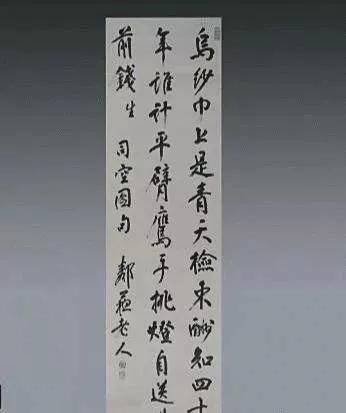 烏紗巾上是青天檢束酬知四十
年誰計平臂鷹手挑燈自送
前錢生 司空圖句 鄰蘇老人